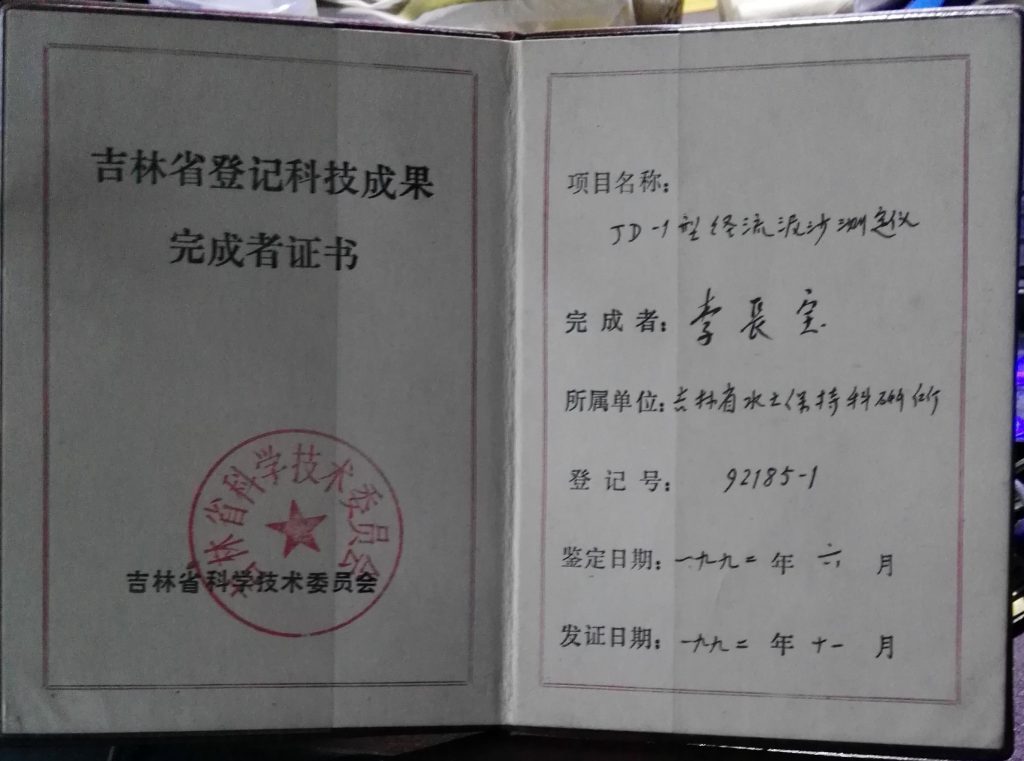 吉林省登记科技成果
完成者证书
吉林省科学技术委员会
吉林省科学技术委员会
项目名称:
JD-1型径流泥沙测定仪
完成者: 李長宝
所属单位: 吉林省水土保持科研所
登记号: 92185-1
鉴定日期: 一九九二年六月
发证日期: 一九九二年十一月